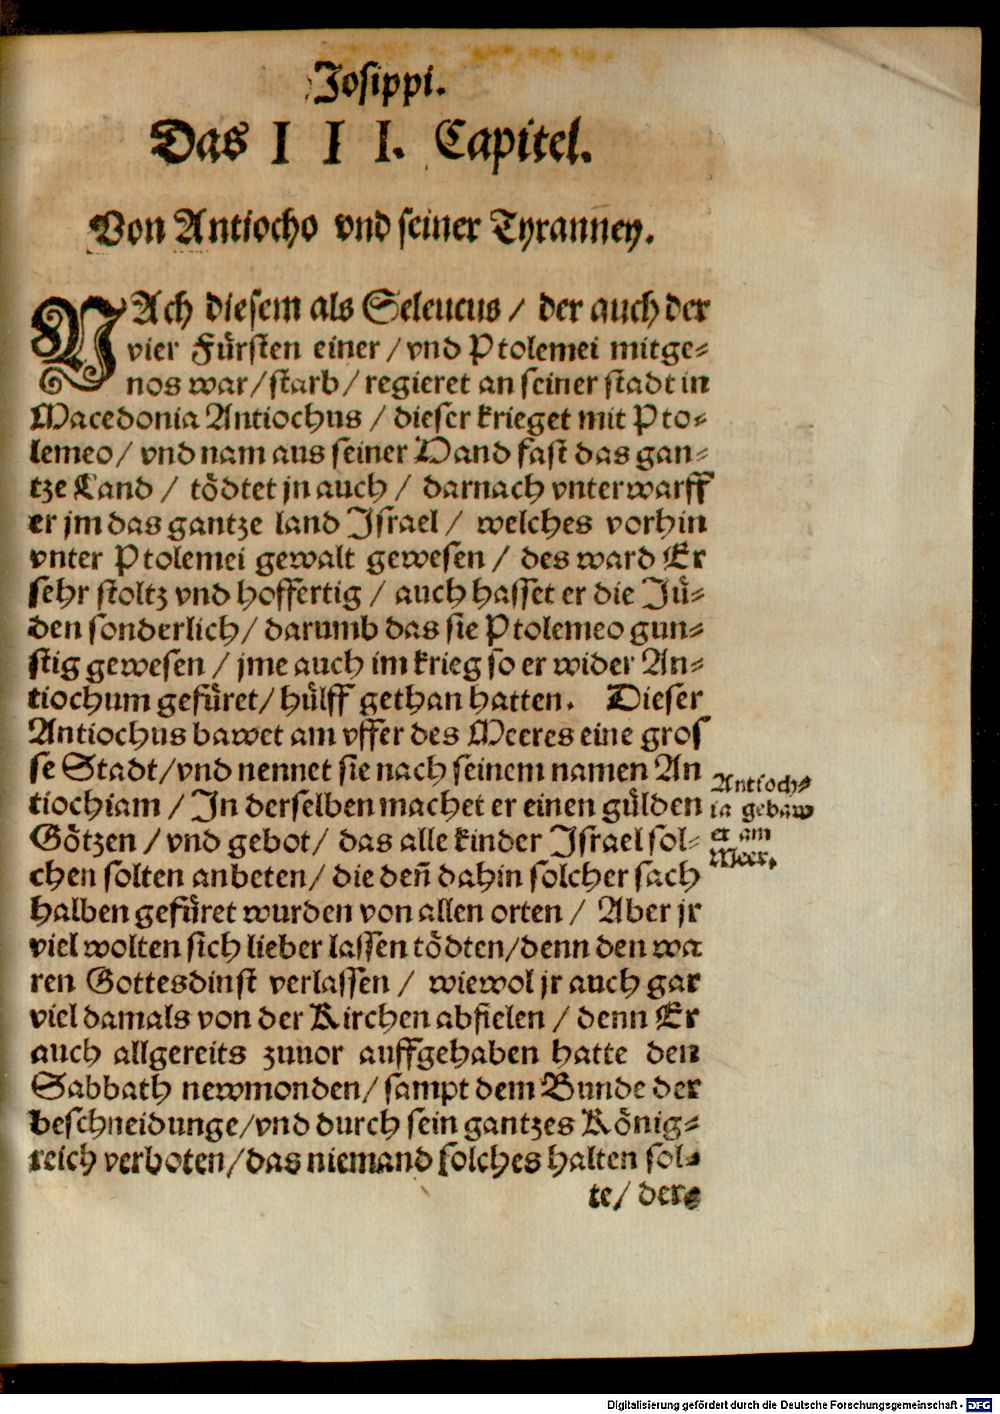 Josippi.
Das I I I. Capitel.
Von Antiocho vnd seiner Tyranney.
NAch diesem als Seleucus / der auch der
vier Fürsten einer / vnd Ptolemei mitge⸗
nos war / starb / regieret an seiner stadt in
Macedonia Antiochus / dieser krieget mit Pto⸗
lemeo / vnd nam aus seiner Hand fast das gan⸗
tze Land / tödtet jn auch / darnach vnterwarff
er jm das gantze land Israel / welches vorhin
vnter Ptolemei gewalt gewesen / des ward Er
sehr stoltz vnd hoffertig / auch hasset er die Jü⸗
den sonderlich / darumb das sie Ptolemeo gun⸗
stig gewesen / jme auch im krieg so er wider An⸗
tiochum gefüret / hülff gethan hatten. Dieser
Antiochus bawet am vffer des Meeres eine gros
se Stadt / vnd nennet sie nach seinem namen An
tiochiam / In derselben machet er einen gülden
Götzen / vnd gebot / das alle kinder Israel sol⸗
chen solten anbeten / die deñ dahin solcher sach
halben gefüret wurden von allen orten / Aber jr
viel wolten sich lieber lassen tödten / denn den wa
ren Gottesdinst verlassen / wiewol jr auch gar
viel damals von der Kirchen abfielen / denn Er
auch allgereits zuuor auffgehaben hatte den
Sabbath newmonden / sampt dem Bunde der
beschneidunge / vnd durch sein gantzes König⸗
reich verboten / das niemand solches halten sol⸗
te / der⸗
Antioch⸗
ia gebaw
et am
Meer.
Digitalisierung gefördert durch die Deutsche Forschungsgemeinschaft - DFG